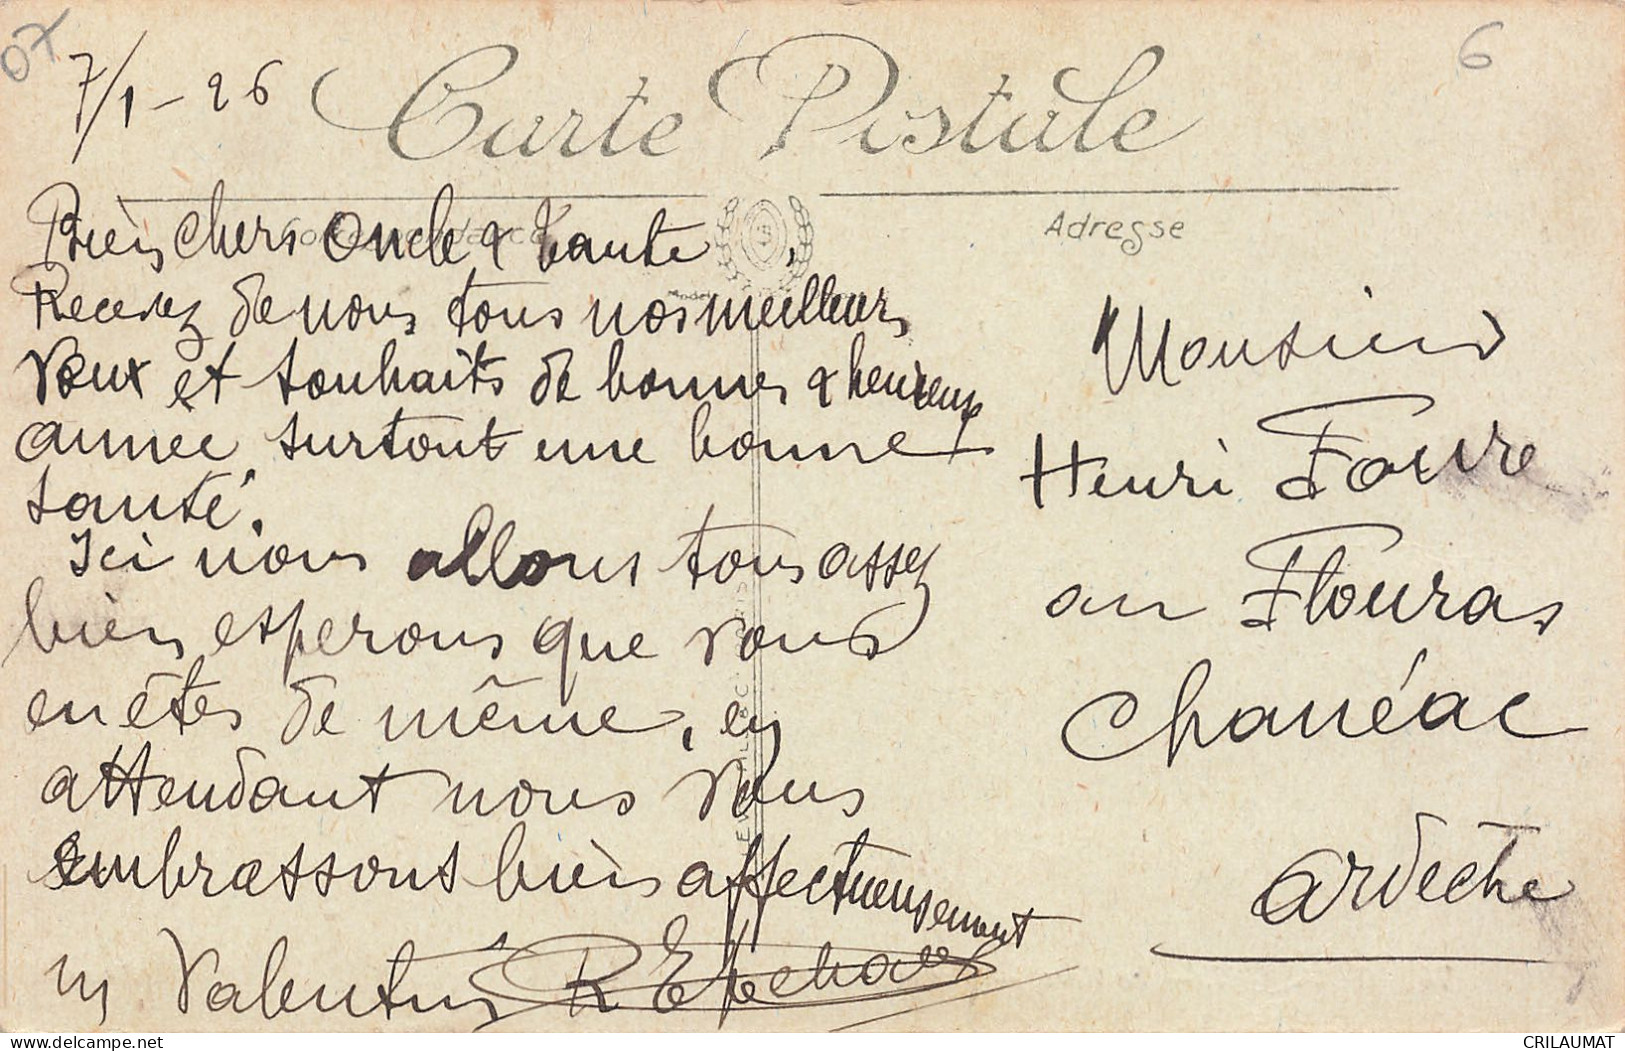 07
6
7/1-26
Carte Postale
Correspondance
Adresse
Bien chers Oncle & tante.
Recevez de nous tous nos meilleurs
Vœux et souhaits de bonnes & heureuse
année, surtout une bonne
santé.
Ici nous allons tous assez
bien esperons que vous
en êtes de même, en
attendant nous Vous
embrassons bien affectueusement
Valentin R
Monsieur
Henri Faure
au Flouras
Chanéac
Ardèche
delcampe.net
CRILAUMAT